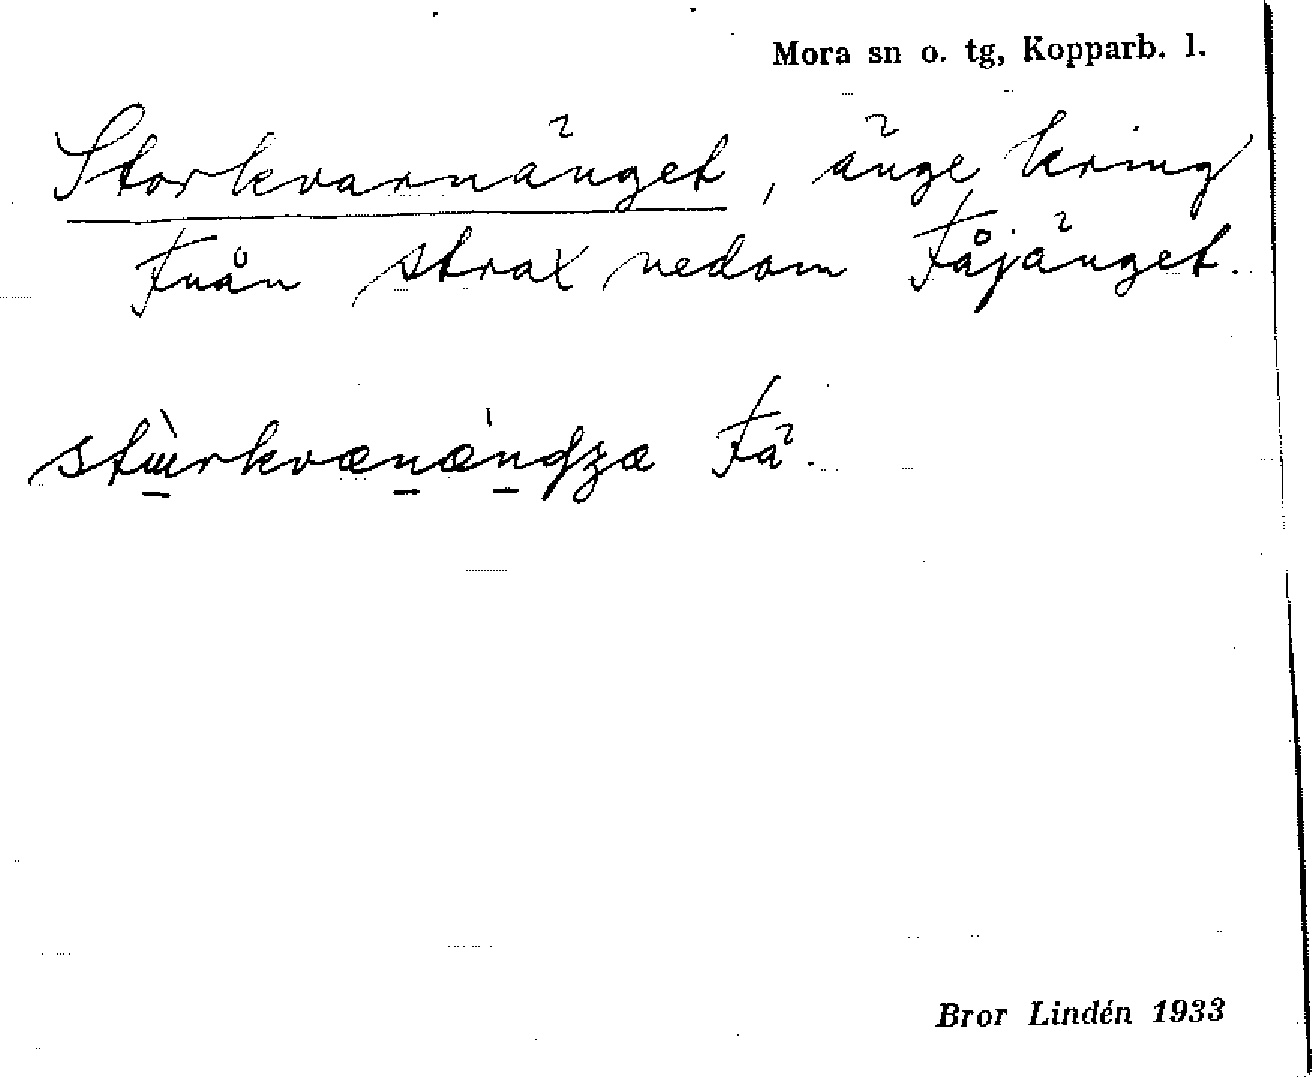 Mora sn o. tg, Kopparb. l.
Storkvarnänget, änge kring
Fuån strax nedom Fåjänget.
Fä.
Bror Lindén 1933